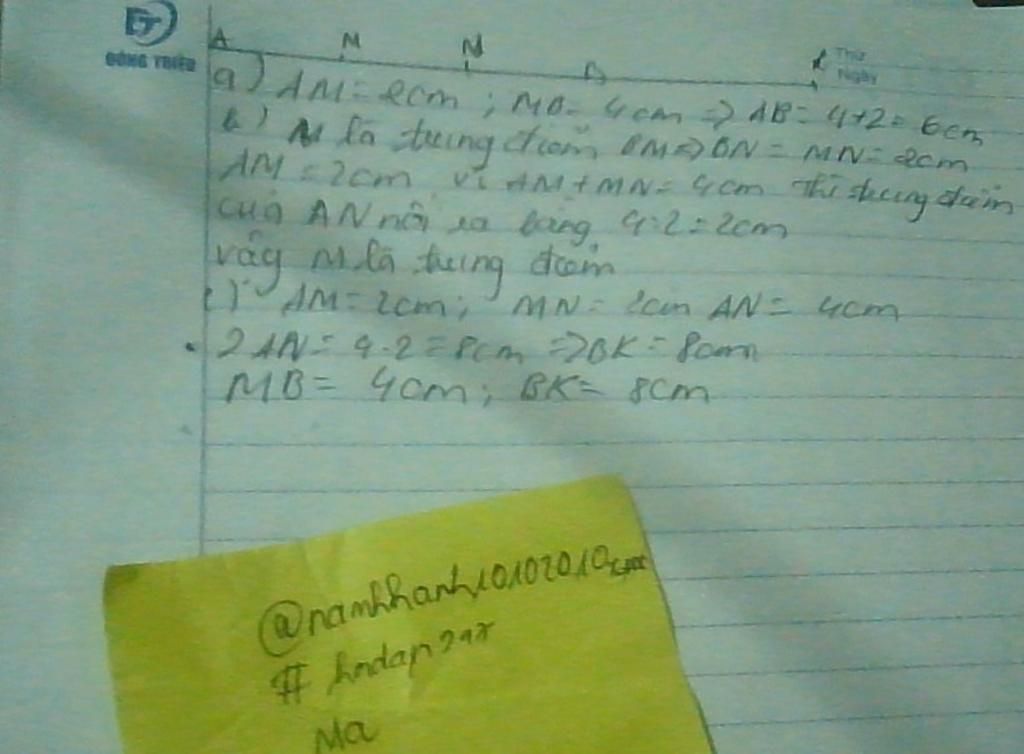 ĐÔNG TRIỀU
Thứ
Ngày
A M N B
a) AM = 2cm ; MB = 4cm => AB = 4+2 = 6cm
b) N là trung điểm BM => BN = MN = 2cm
AM = 2cm vì AM + MN = 4cm thì trung điểm
của AN nói ra bằng 4:2 = 2cm
vậy M là trung điểm
c) AM = 2cm; MN = 2cm AN = 4cm
2AN = 4.2 = 8cm => BK = 8cm
MB = 4cm; BK = 8cm
@namhhanh10102010
# hndap
Ma